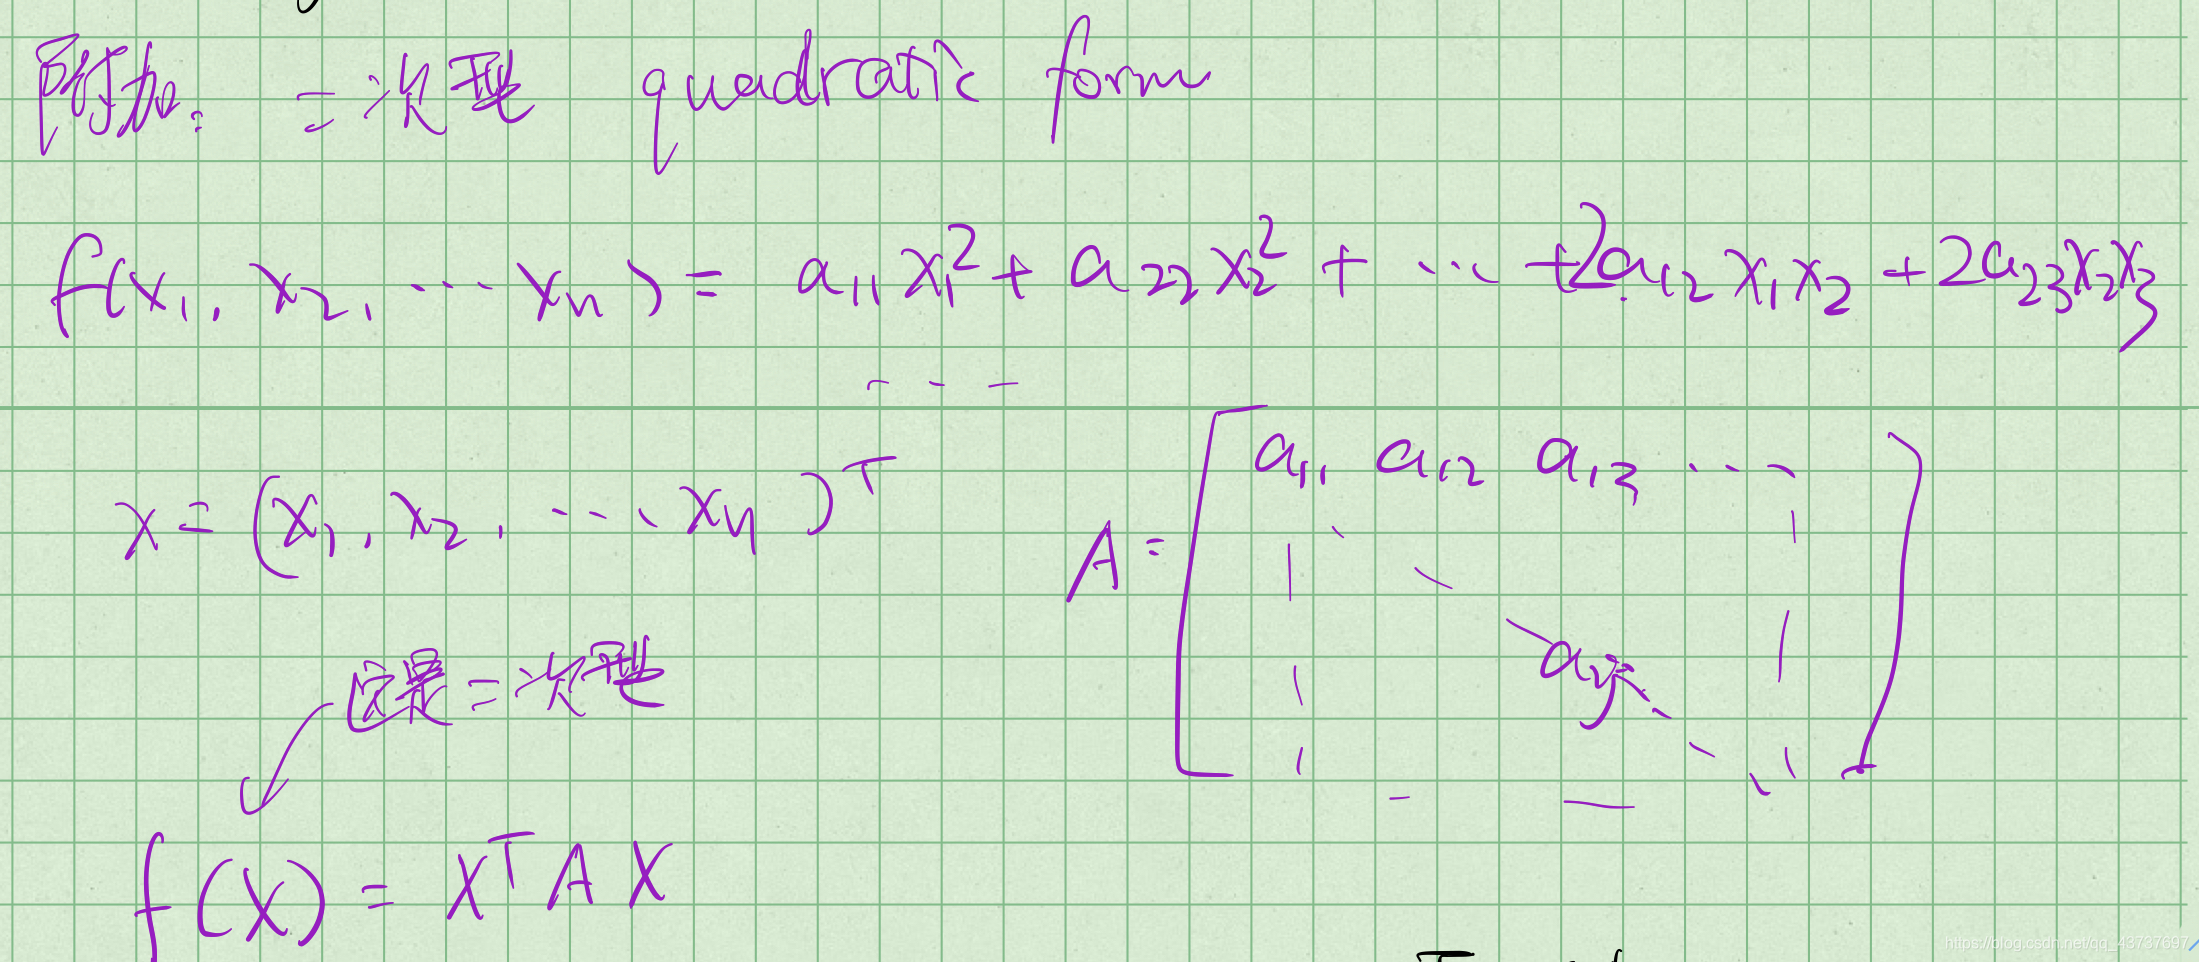 附加: 二次型 quadratic form
f(x₁, x₂, ⋯ xₙ) = a₁₁x₁² + a₂₂x₂² + ⋯ + 2a₁₂x₁x₂ + 2a₂₃x₂x₃
- - -
x = (x₁, x₂, ⋯, xₙ)ᵀ
A = [a₁₁ a₁₂ a₁₃ ⋯
aᵢⱼ ]
这是二次型
f(X) = XᵀAX
https://blog.csdn.net/qq_43737697